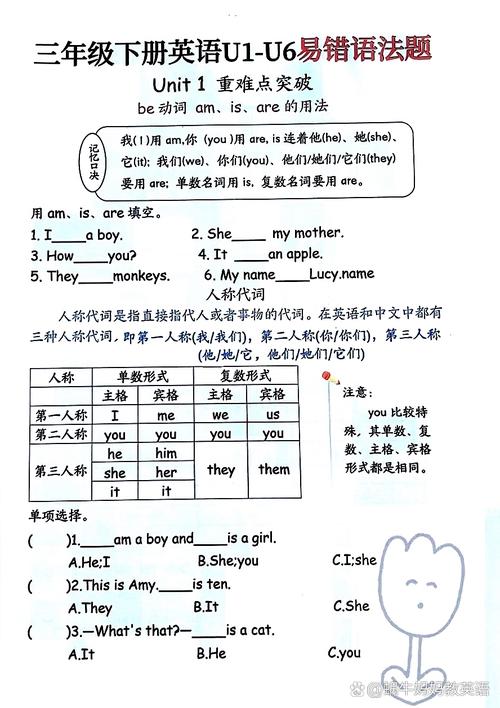 三年级下册英语U1-U6易错语法题
Unit 1 重难点突破
be动词 am、is、are 的用法
记忆口决
我(I)用am,你 (you)用are, is 连着他(he)、她(she)、
它(it); 我们(we)、你们(you)、他们/她们/它们(they)
要用are; 单数名词用is, 复数名词要用are。
用am、is、are填空。
1. I____a boy. 2. She____ my mother.
3. How____you? 4. It ____an apple.
5. They____monkeys. 6. My name____Lucy.name
人称代词
人称代词是指直接指代人或者事物的代词。在英语和中文中都有
三种人称代词, 即第一人称(我/我们), 第二人称(你/你们), 第三人称
(他/她/它, 他们/她们/它们)
人称 单数形式 复数形式
主格 宾格 主格 宾格
第一人称 I me we us
第二人称 you you you you
第三人称 he him they them
she her
it it
注意:
you比较特
殊, 其单数、复
数、主格、宾格
形式都是相同。
单项选择。
( )1.____am a boy and____is a girl.
A.He;I B.She;you C.I;she
( )2.This is Amy.____is ten.
A.They B.It C.She
( )3.—What's that?—____is a cat.
A.It B.He C.you
@蜗牛妈妈教英语